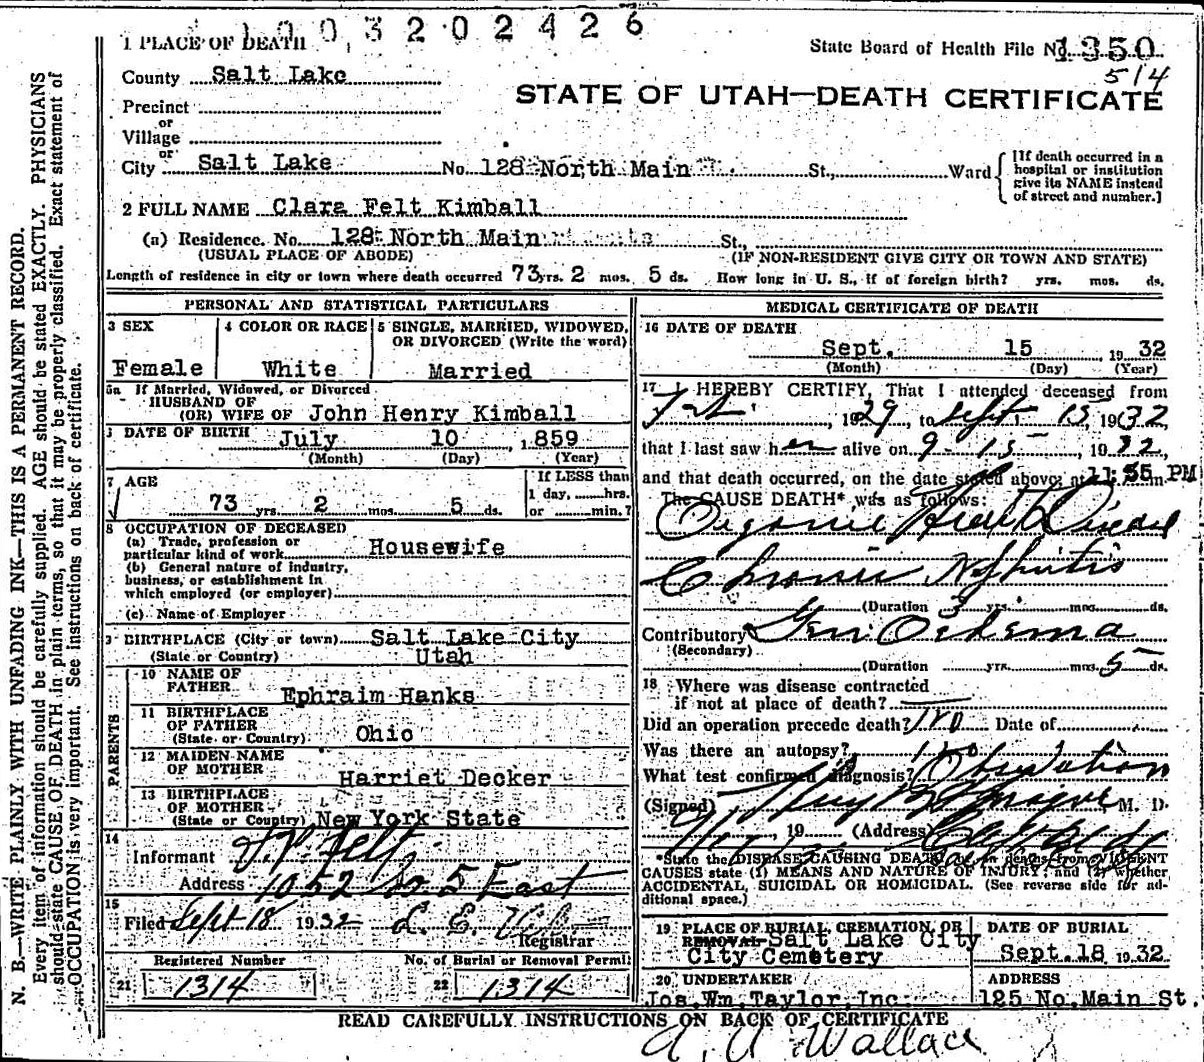 1003202426
1 PLACE OF DEATH
State Board of Health File No. 1350
514
County Salt Lake
STATE OF UTAH—DEATH CERTIFICATE
Precinct
or
Village
or
City Salt Lake No. 128 North Main St., Ward
[If death occurred in a
hospital or institution
give its NAME instead
of street and number.]
2 FULL NAME Clara Felt Kimball
(a) Residence. No. 128 North Main St.,
(USUAL PLACE OF ABODE) (IF NON-RESIDENT GIVE CITY OR TOWN AND STATE)
Length of residence in city or town where death occurred 73 yrs. 2 mos. 5 ds. How long in U. S., if of foreign birth? yrs. mos. ds.
PERSONAL AND STATISTICAL PARTICULARS
3 SEX
Female
4 COLOR OR RACE
White
5 SINGLE, MARRIED, WIDOWED,
OR DIVORCED (Write the word)
Married
5a If Married, Widowed, or Divorced
HUSBAND OF
(OR) WIFE OF John Henry Kimball
DATE OF BIRTH July 10, 1859
(Month) (Day) (Year)
7 AGE
73 yrs. 2 mos. 5 ds.
If LESS than
1 day, hrs.
or min.?
8 OCCUPATION OF DECEASED
(a) Trade, profession or
particular kind of work Housewife
(b) General nature of industry,
business, or establishment in
which employed (or employer)
(c) Name of Employer
9 BIRTHPLACE (City or town) Salt Lake City
(State or Country) Utah
PARENTS
10 NAME OF
FATHER Ephraim Hanks
11 BIRTHPLACE
OF FATHER
(State or Country) Ohio
12 MAIDEN NAME
OF MOTHER Harriet Decker
13 BIRTHPLACE
OF MOTHER
(State or Country) New York State
14
Informant Felt
Address 1052 So 5 East
15
Filed Sept 18 1932 L. E.
Registrar
Registered Number
21 1314
No. of Burial or Removal Permit
22 1314
MEDICAL CERTIFICATE OF DEATH
16 DATE OF DEATH
Sept. 15, 1932
(Month) (Day) (Year)
17 I HEREBY CERTIFY, That I attended deceased from
1929, to Sept 15, 1932,
that I last saw her alive on 9-15 1932,
and that death occurred, on the date stated above, at 11:55 PM m.
The CAUSE DEATH* was as follows:
Organic Heart Disease
Chronic Nephritis
(Duration 3 yrs. mos. ds.
Contributory Gen. Oedema
(Secondary)
(Duration yrs. mos. 5 ds.
18 Where was disease contracted
if not at place of death?
Did an operation precede death? no Date of
Was there an autopsy? no
What test confirmed diagnosis? Observation
(Signed) M. D.
, 19 (Address)
*State the DISEASE CAUSING DEATH, or in deaths from VIOLENT
CAUSES state (1) MEANS AND NATURE OF INJURY; and (2) whether
ACCIDENTAL, SUICIDAL OR HOMICIDAL. (See reverse side for ad-
ditional space.)
19 PLACE OF BURIAL, CREMATION, OR
REMOVAL Salt Lake City
City Cemetery
DATE OF BURIAL
Sept. 18 1932
20 UNDERTAKER
Jos. Wm. Taylor, Inc.
ADDRESS
125 No. Main St.
READ CAREFULLY INSTRUCTIONS ON BACK OF CERTIFICATE
Wallace
N. B.—WRITE PLAINLY WITH UNFADING INK—THIS IS A PERMANENT RECORD.
Every item of information should be carefully supplied. AGE should be stated EXACTLY. PHYSICIANS
should state CAUSE OF DEATH in plain terms, so that it may be properly classified. Exact statement of
OCCUPATION is very important. See instructions on back of certificate.